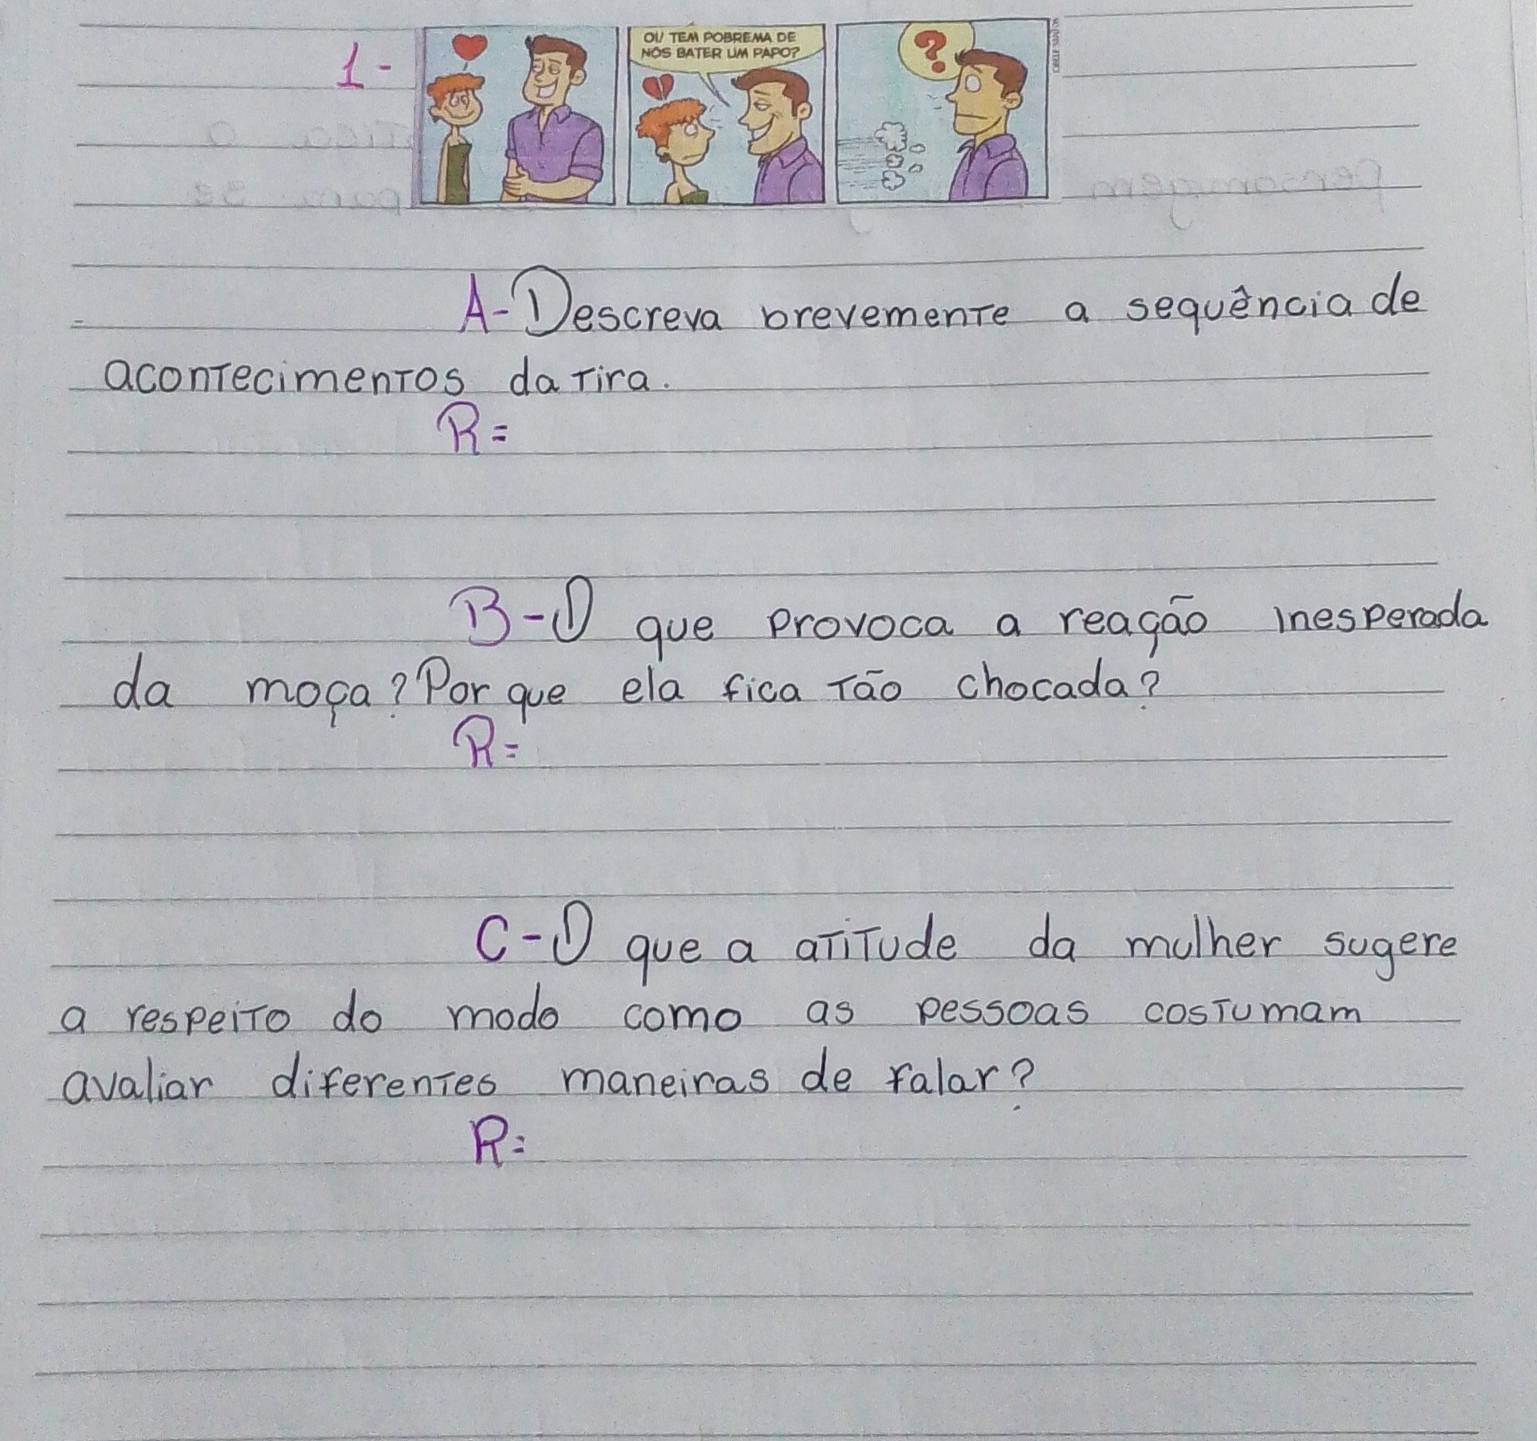 1-
OI! TEM POBREMA DE
NÓS BATER UM PAPO?
?
A-Descreva brevemente a sequência de
acontecimentos da tira.
R=
B-O que provoca a reação inesperada
da moça? Por que ela fica tão chocada?
R=
C-O que a atitude da mulher sugere
a respeito do modo como as pessoas costumam
avaliar diferentes maneiras de falar?
R=